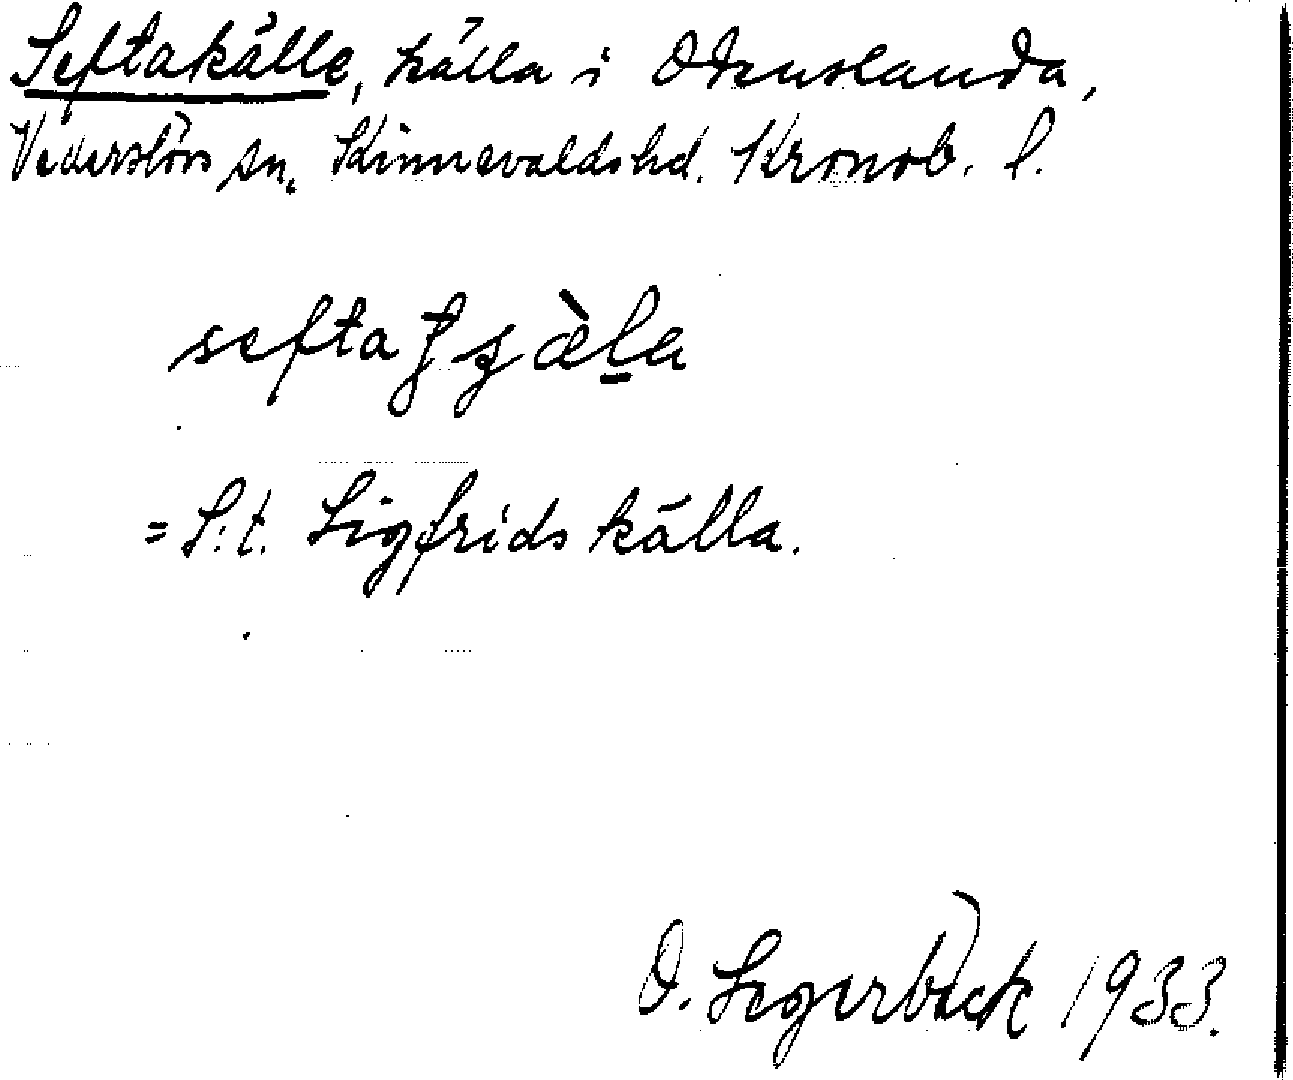 Seftakälle, källa i Odenslanda,
Vederslövs sn. Kinnevalds hd. Kronob. l.
= S:t. Sigfrids källa.
O. Segerbäck 1933.